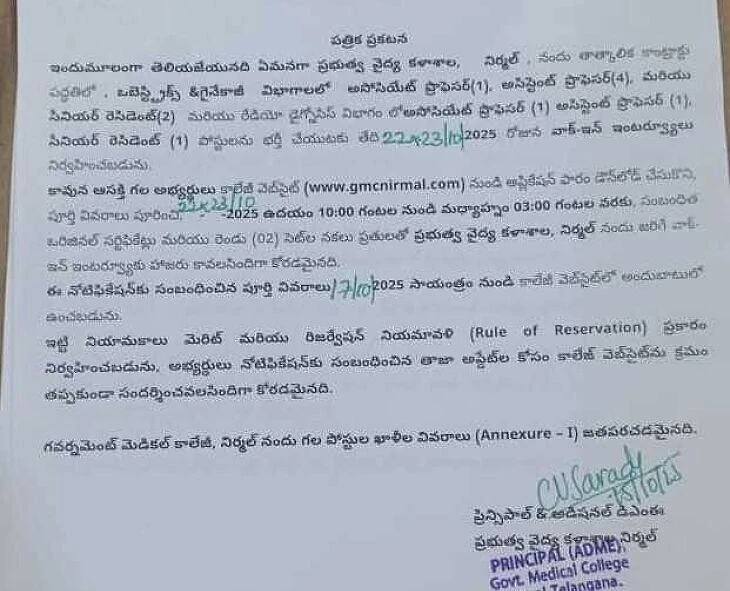 పత్రిక ప్రకటన
ఇందుమూలంగా తెలియజేయునది ఏమనగా ప్రభుత్వ వైద్య కళాశాల, నిర్మల్ , నందు తాత్కాలిక కాంట్రాక్టు
పద్ధతిలో , ఒబెస్ట్రిక్స్ &గైనేకాజీ విభాగాలలో అసోసియేట్ ప్రొఫెసర్(1), అసిస్టెంట్ ప్రొఫెసర్(4), మరియు
సీనియర్ రెసిడెంట్(2) మరియు రేడియో డైగ్నోసిస్ విభాగం లోఅసోసియేట్ ప్రొఫెసర్ (1) అసిస్టెంట్ ప్రొఫెసర్ (1),
సీనియర్ రెసిడెంట్ (1) పోస్టులను భర్తీ చేయుటకు తేది 22&23/10/2025 రోజున వాక్-ఇన్ ఇంటర్వ్యూలు
నిర్వహించబడును.
కావున ఆసక్తి గల అభ్యర్థులు కాలేజీ వెబ్‌సైట్ (www.gmcnirmal.com) నుండి అప్లికేషన్ ఫారం డౌన్‌లోడ్ చేసుకొని,
పూర్తి వివరాలు పూరించి, 22&23/10 -2025 ఉదయం 10:00 గంటల నుండి మధ్యాహ్నం 03:00 గంటల వరకు, సంబంధిత
ఒరిజినల్ సర్టిఫికేట్లు మరియు రెండు (02) సెట్‌ల నకలు ప్రతులతో ప్రభుత్వ వైద్య కళాశాల, నిర్మల్ నందు జరిగే వాక్-
ఇన్ ఇంటర్వ్యూకు హాజరు కావలసిందిగా కోరడమైనది.
ఈ నోటిఫికేషన్‌కు సంబంధించిన పూర్తి వివరాలు 17/10/2025 సాయంత్రం నుండి కాలేజీ వెబ్‌సైట్‌లో అందుబాటులో
ఉంచబడును.
ఇట్టి నియామకాలు మెరిట్ మరియు రిజర్వేషన్ నియమావళి (Rule of Reservation) ప్రకారం
నిర్వహించబడును, అభ్యర్థులు నోటిఫికేషన్‌కు సంబంధించిన తాజా అప్డేట్‌ల కోసం కాలేజ్ వెబ్‌సైట్‌ను క్రమం
తప్పకుండా సందర్శించవలసిందిగా కోరడమైనది.
గవర్నమెంట్ మెడికల్ కాలేజీ, నిర్మల్ నందు గల పోస్టుల ఖాళీల వివరాలు (Annexure – I) జతపరచడమైనది.
15/10/25
ప్రిన్సిపాల్ & అడిషనల్ డీఎంఈ
ప్రభుత్వ వైద్య కళాశాల నిర్మల్
PRINCIPAL (ADME),
Govt. Medical College
Telangana.